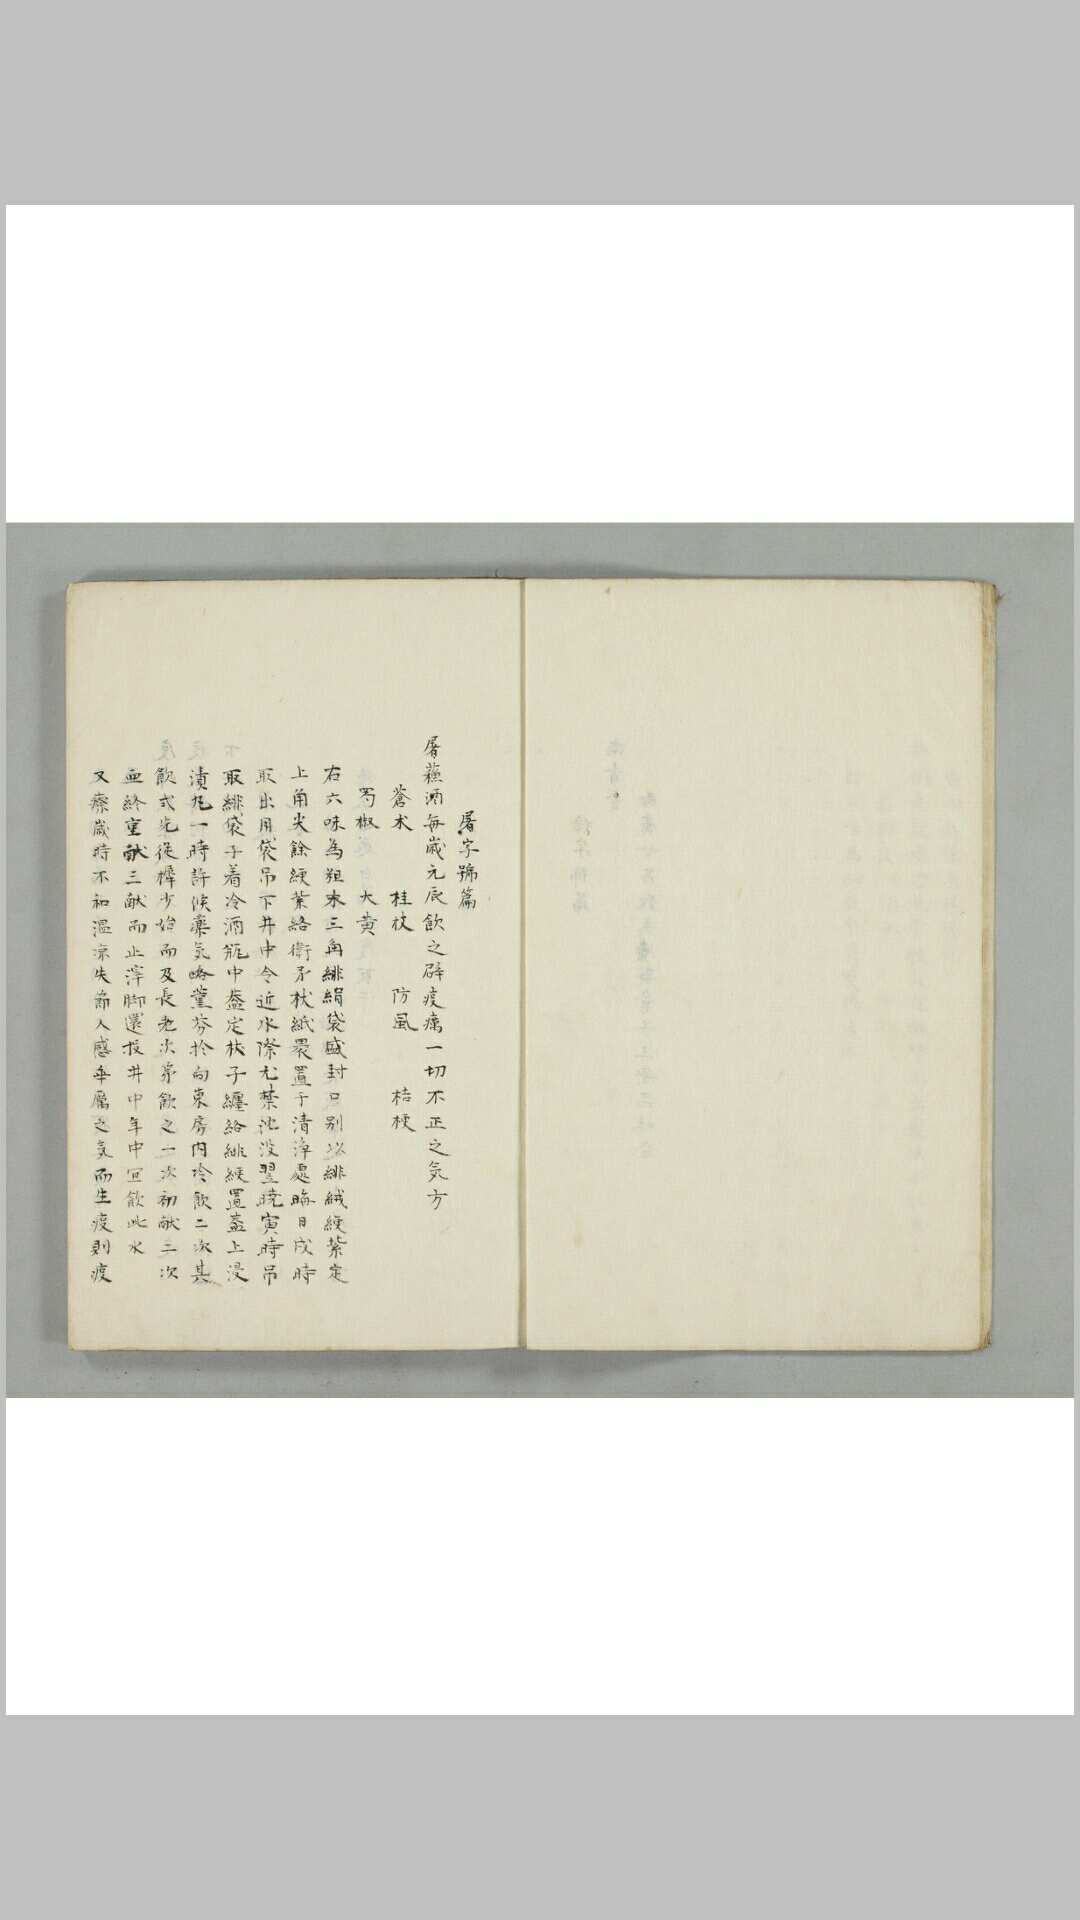 屠字號篇
屠蘓酒每歲元辰飲之辟疫癘一切不正之気方
蒼朮 桂枝 防風 桔梗
蜀椒 大黄
右六味為粗末三角緋絹袋盛封口别以緋絨綆紮定
上角尖餘綆葉絡衛矛杖紙裹置于清淨處晦日戌時
取出用袋吊下井中令近水際尤禁沈没翌暁寅時吊
取緋袋子着冷酒瓶中盔定杖子纏給緋綆置盔上浸
漬凡一時許候薬気略薰芬於向東房内冷飲二次其
飲式先従穉少始而及長老次第飲之一次初献二次
亜終重献三献而止滓脚還投井中年中宜飲此水
又療歲時不和温凉失節人感乖厲之気而生疫則疫